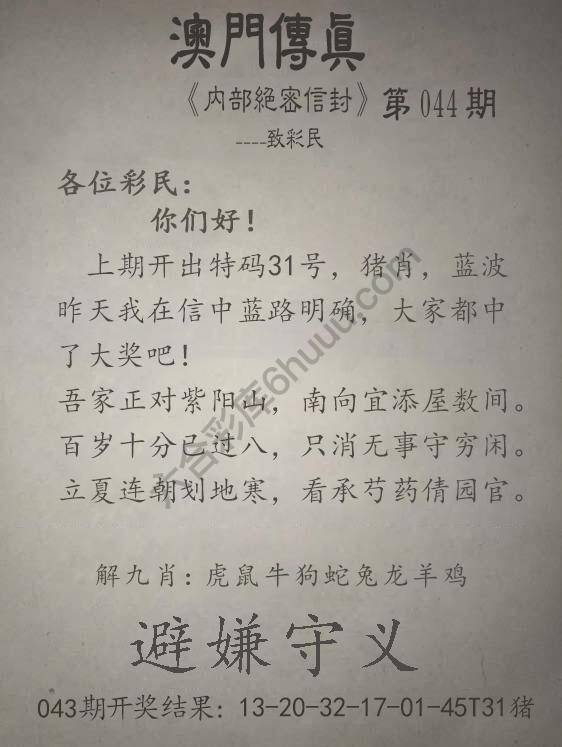 澳門傳真
《内部絕密信封》第044期
----致彩民
各位彩民：
你们好！
上期开出特码31号，猪肖，蓝波
昨天我在信中蓝路明确，大家都中
了大奖吧！
吾家正对紫阳山，南向宜添屋数间。
百岁十分已过八，只消无事守穷闲。
立夏连朝划地寒，看承芍药倩园官。
解九肖：虎鼠牛狗蛇兔龙羊鸡
避嫌守义
043期开奖结果：13-20-32-17-01-45T31猪
六合彩库6huuu.com